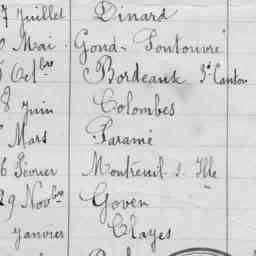 7 Juillet Dinard
Mai Gond-Pontouvre
Octbre Bordeaux 3e Canton
8 Juin Colombes
Mars Paramé
6 Février Montreuil s. Ille
29 Novbre Goven
Janvier Clayes